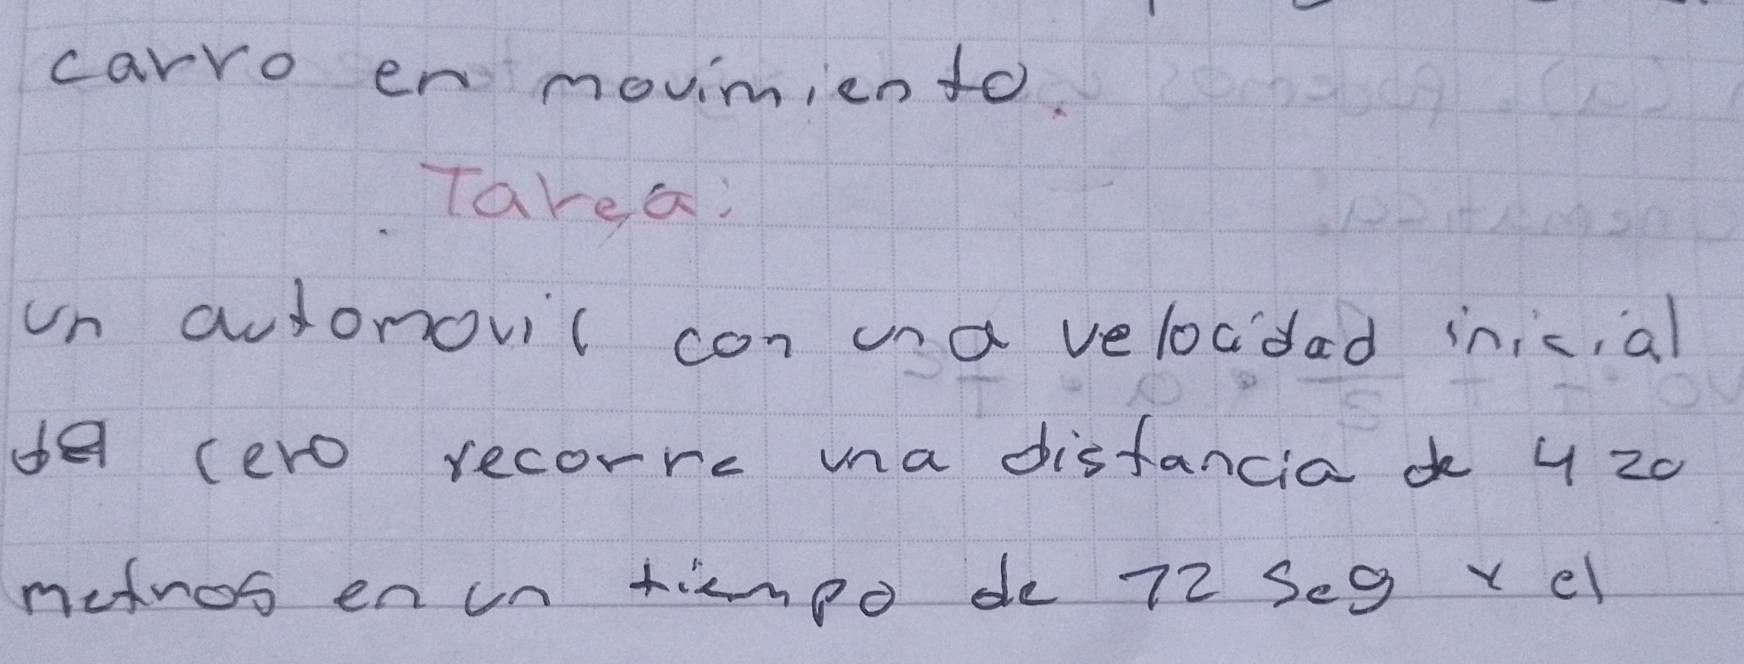 carro en movimiento.
Tarea:
un automovil con una velocidad inicial
de cero recorre una distancia de 420
metros en un tiempo de 72 seg y el